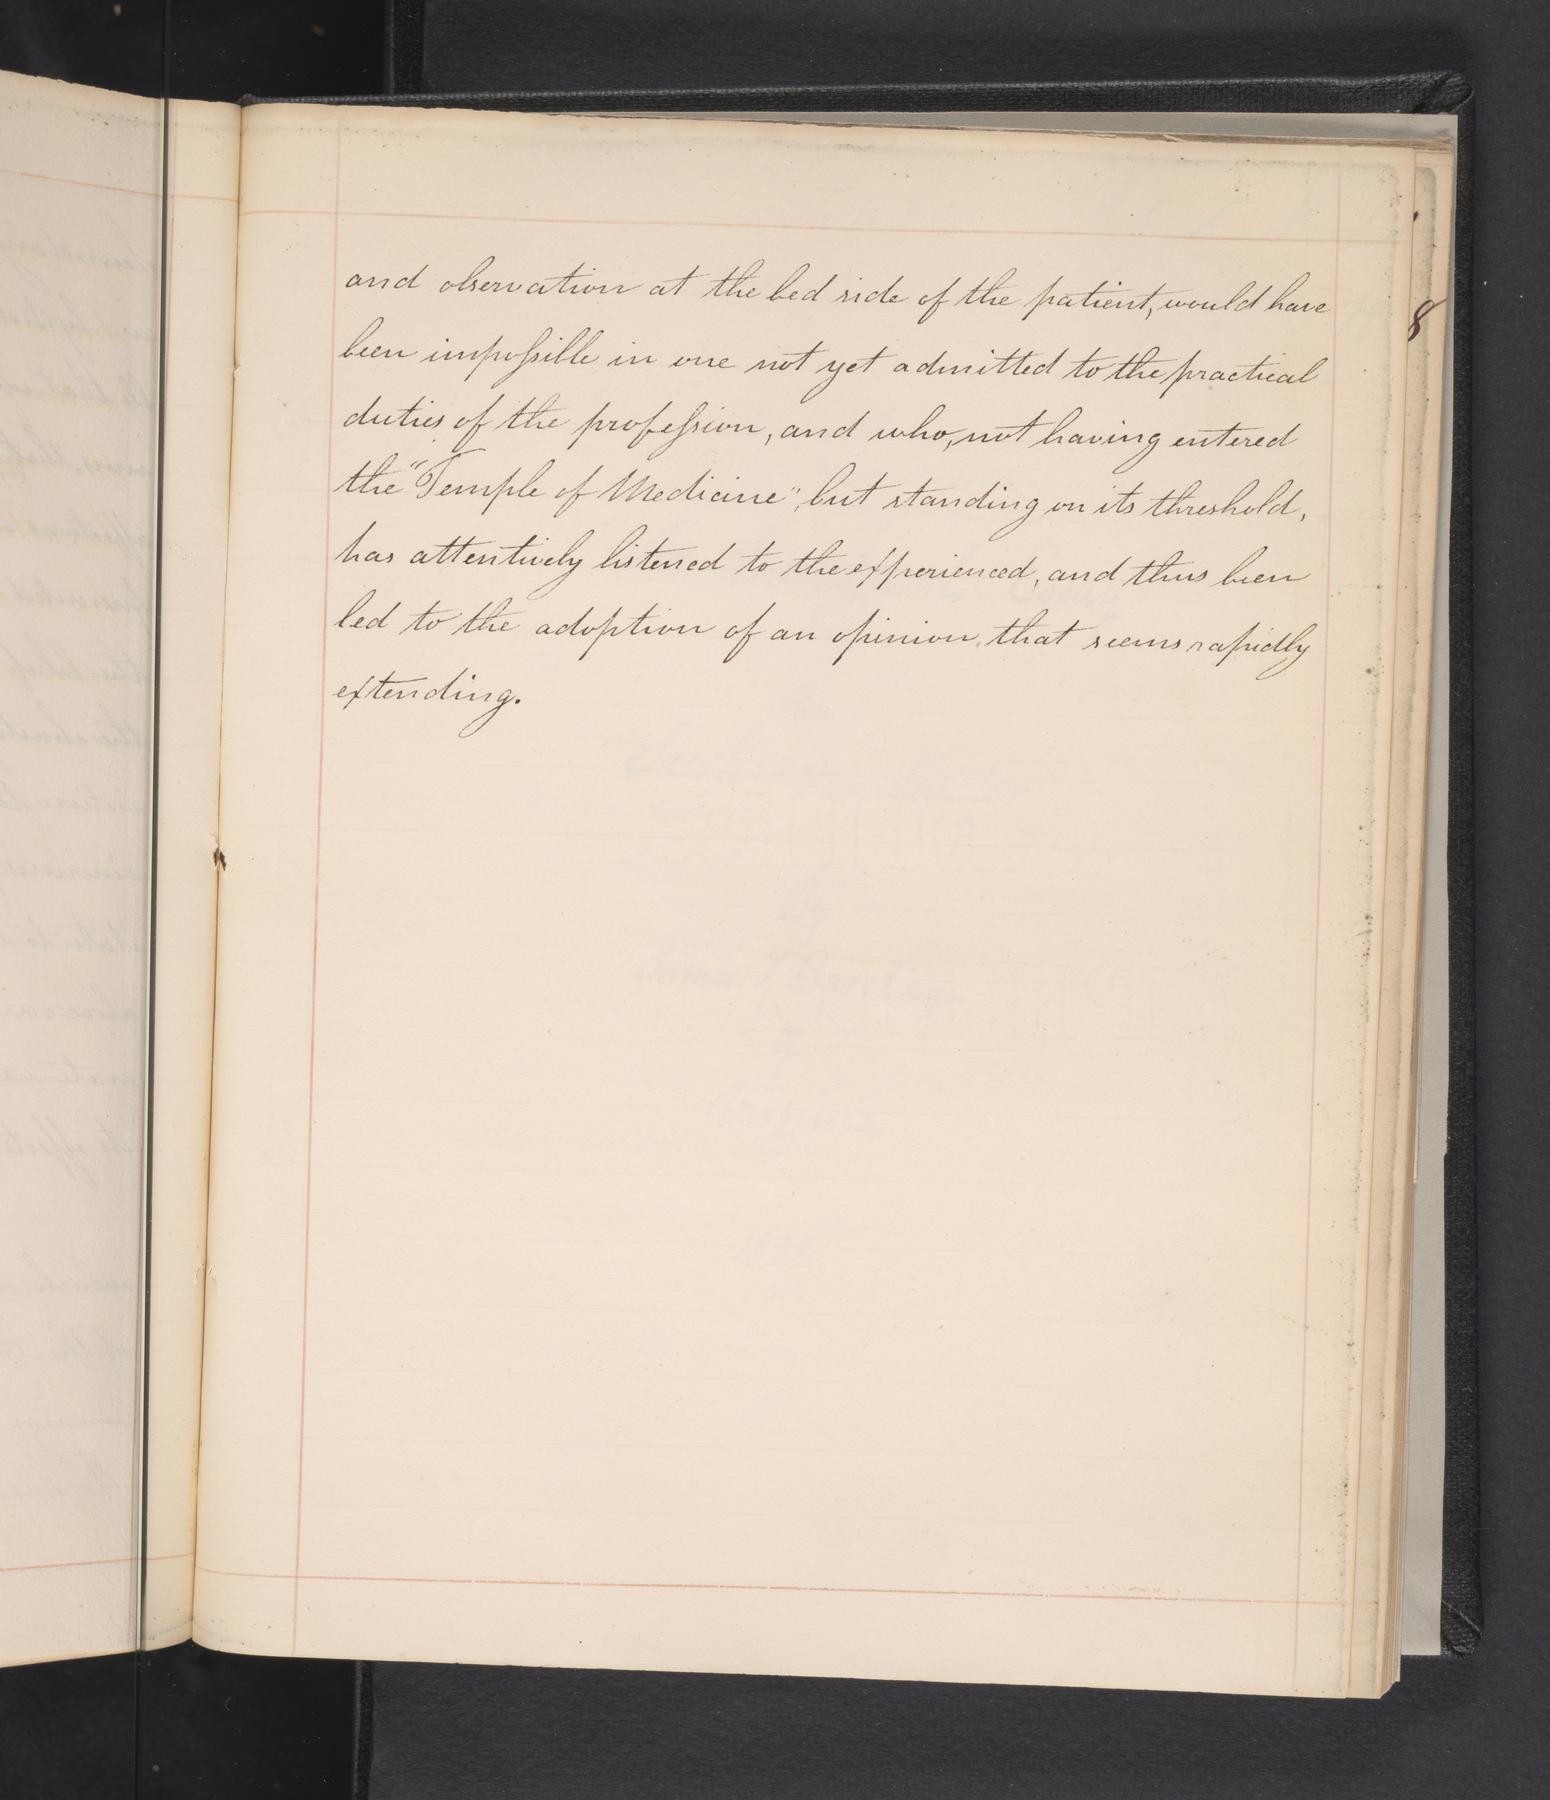 and observation at the bed side of the patient, would have
been impossible in one not yet admitted to the practical
duties of the profession, and who, not having entered
the "Temple of Medicine", but standing on its threshold,
has attentively listened to the experienced, and thus been
led to the adoption of an opinion that seems rapidly
extending.
8